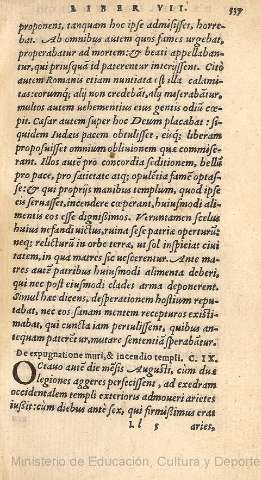 LIBER VII. 537
proponens, tanquam hoc ipse admisisset, horre-
bat. Ab omnibus autem quos fames urgebat,
properabatur ad mortem: & beati appellaban-
tur, qui priusquã id paterentur interissent. Citò
autem Romanis etiam nuntiata est illa calami-
tas: eorumq; alij non credebãt, alij miserabãtur,
multos autem uehementius eius gentis odiũ cœ-
pit. Cæsar autem super hoc Deum placabat: si-
quidem Iudæis pacem obtulisset, eisq; liberam
proposuisset omnium obliuionem quæ commise-
rant. Illos autẽ pro concordia seditionem, bellũ
pro pace, pro satietate atq; opulẽtia famẽ optas-
se: & qui proprijs manibus templum, quod ipse
eis seruasset, incendere cœperant, huiusmodi ali-
mentis eos esse dignissimos. Veruntamen scelus
huius nefandi uictus, ruina se se patriæ operturũ:
neq; relicturũ in orbe terræ, ut sol inspiciat ciui
tatem, in qua matres sic uescerentur. Ante ma-
tres autẽ patribus huiusmodi alimenta deberi,
qui nec post eiusmodi clades arma deponerent.
Simul hæc dicens, desperationem hostium reputa-
bat, nec eos sanam mentem recepturos existi-
mabat, qui cuncta iam pertulissent, quibus an-
tequam paterẽtur, mutare sententiã sperabatur.
De expugnatione muri, & incendio templi. C. IX.
OCtauo autẽ die mẽsis Augusti, cùm duæ
legiones aggeres perfecissent, ad exedram
occidentalem templi exterioris admoueri arietes
iussit: cùm diebus antè sex, qui firmissimus erat
Ll 5 aries,
Ministerio de Educación, Cultura y Deporte